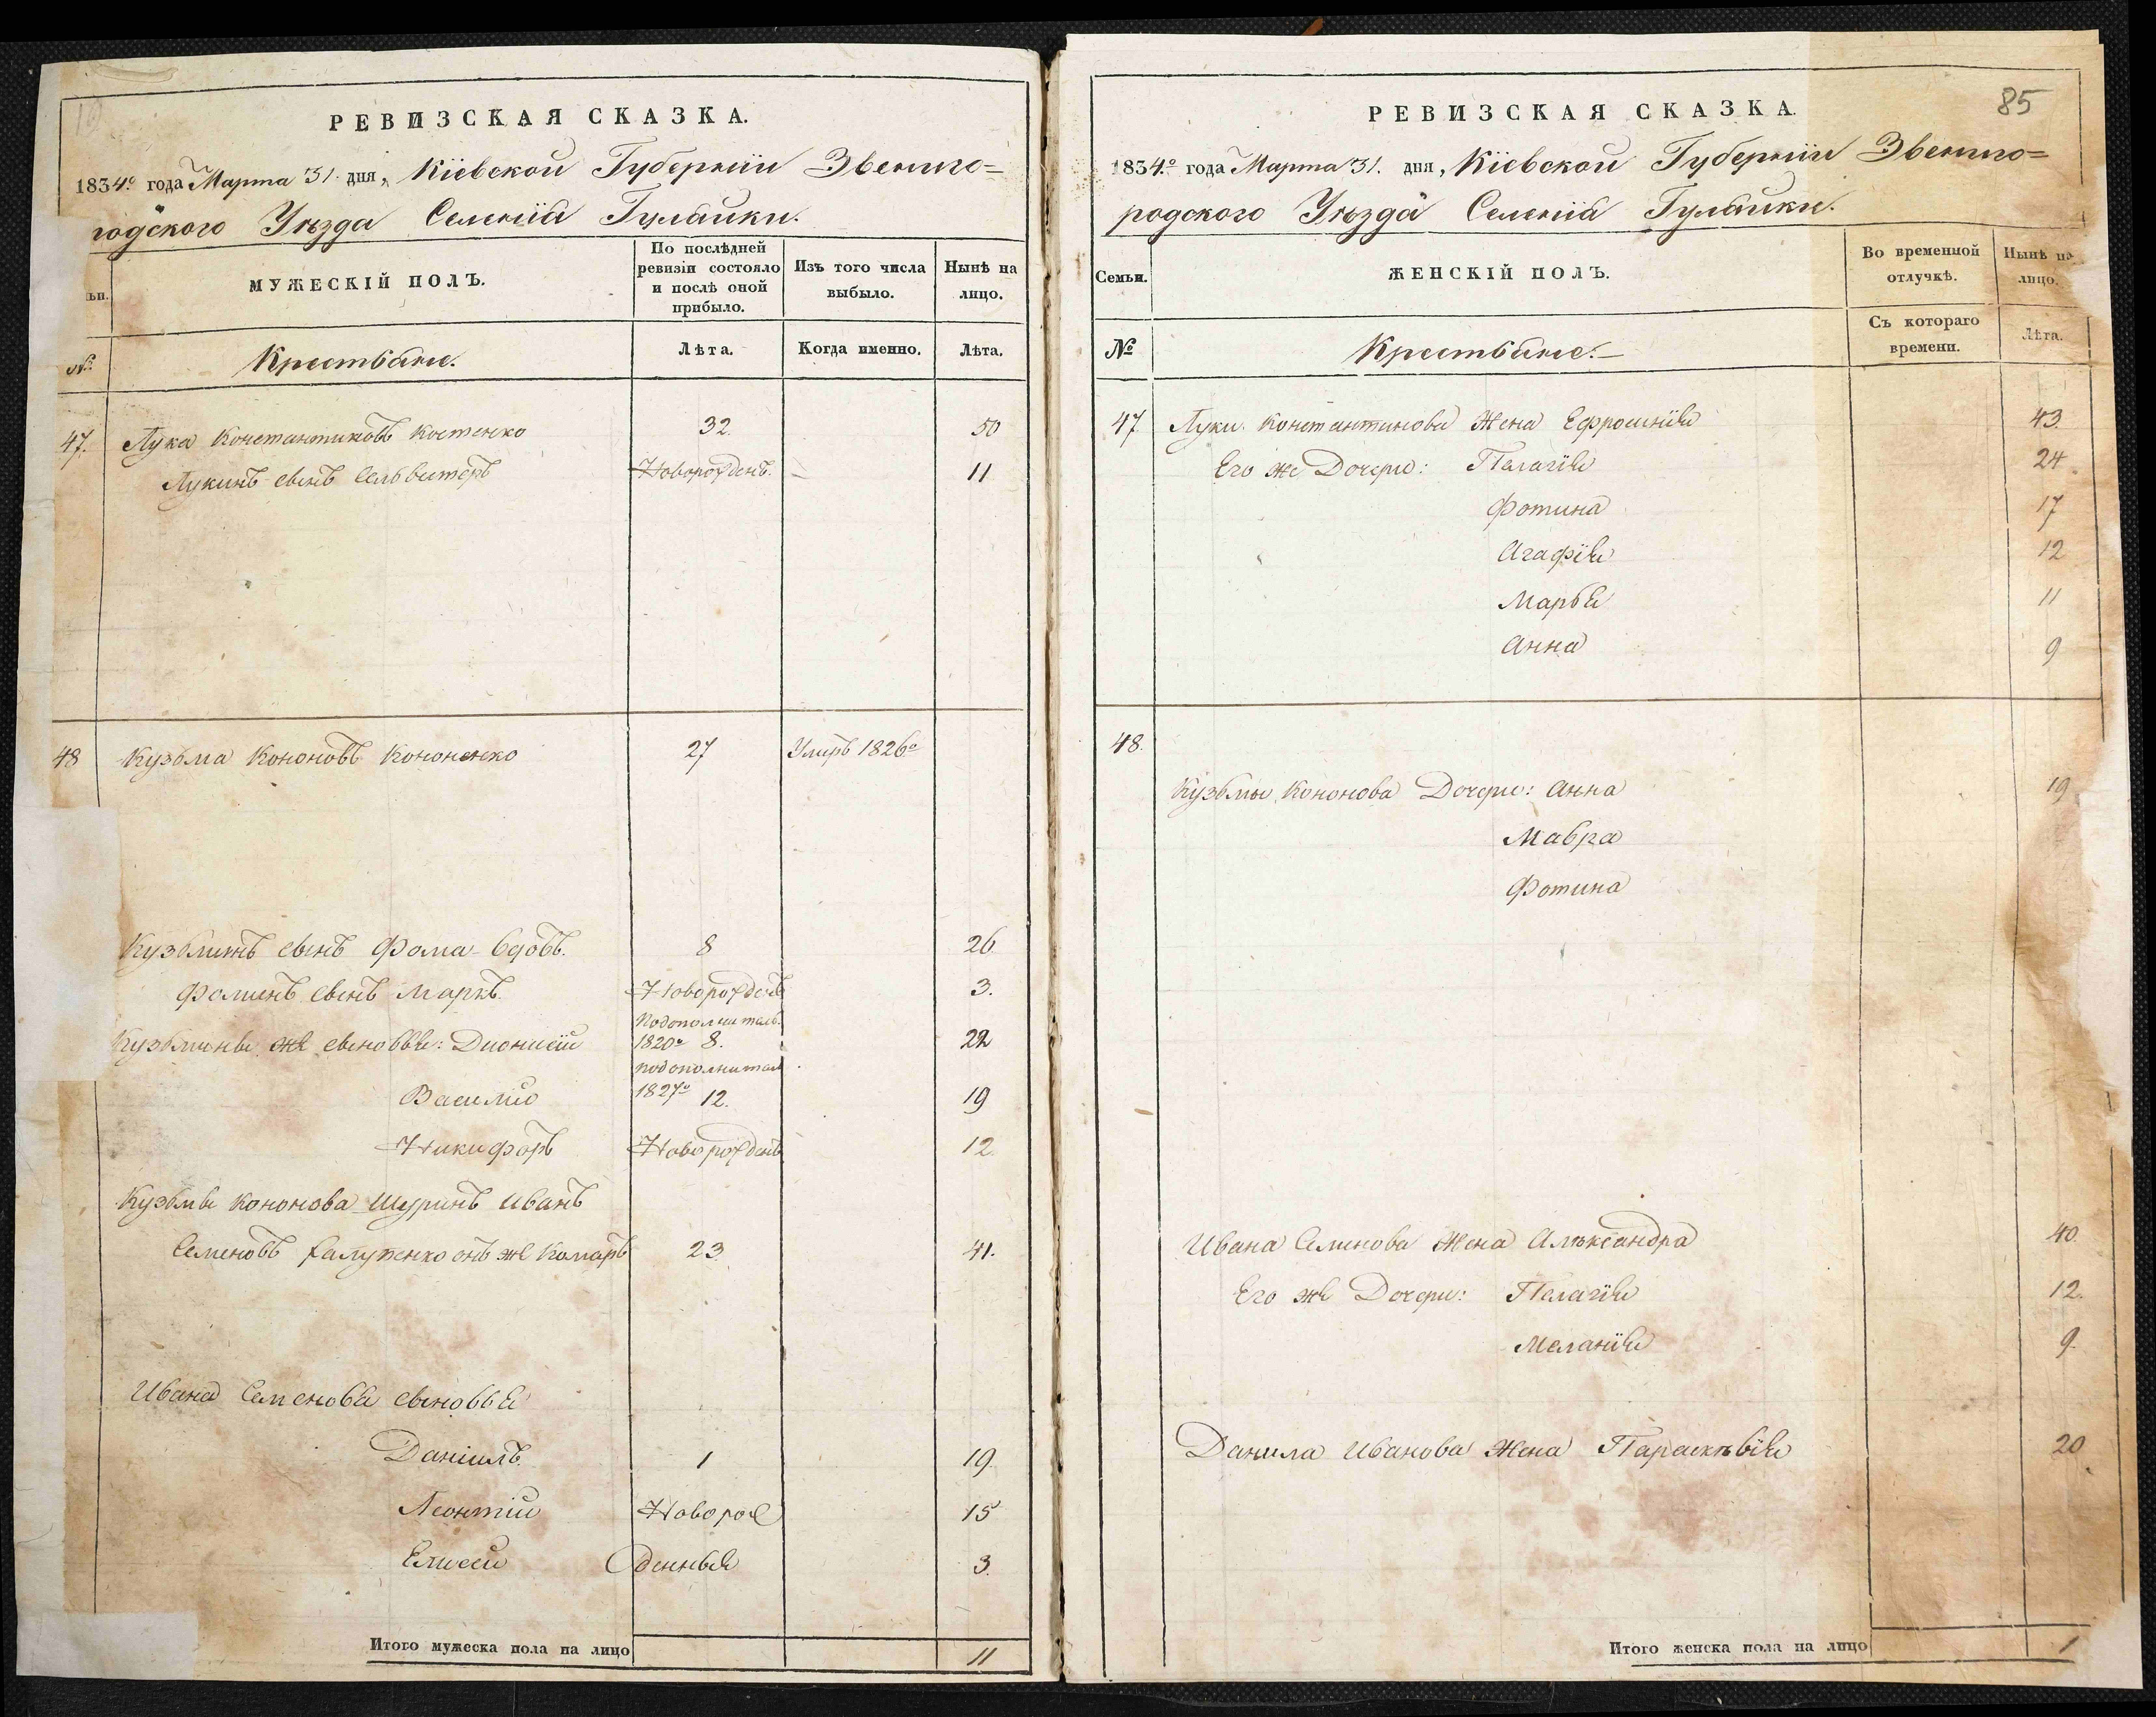 РЕВИЗСКАЯ СКАЗКА.
1834го года Марта 31. дня, Кіевской Губерніи Звениго=
родского Уѣзда Селенія Гулайки.
МУЖЕСКІЙ ПОЛЪ.
По послѣдней ревизіи состояло и послѣ оной прибыло.
Изъ того числа выбыло.
Нынѣ на лицо.
№.
Крестьяне.
Лѣта.
Когда именно.
Лѣта.
47. Лука Константиновъ Костенко 32. 50
Лукинъ сынъ Сельвестеръ Новорожденъ. 11
48 Кузьма Кононовъ Кононенко 27 Умеръ 1826го
Кузьминъ сынъ Фома вдовъ. 8 26.
Фоминъ сынъ Маркъ. Новорожденъ 3.
Кузьмины же сыновья: Дионисій 1820го 8. 22
Василій 1827го 12. 19
Никифоръ Новорожденъ 12.
Кузьмы Кононова Шуринъ Иванъ
Семеновъ онъ же Комаръ 23. 41.
Ивана Семенова сыновья
Даніилъ. 1 19.
Леонтій Новорож 15
Елисей денныя 3.
Итого мужеска пола на лицо 11
85
РЕВИЗСКАЯ СКАЗКА.
1834.го года Марта 31. дня, Кіевской Губерніи Звениго=
родского Уѣзда Селенія Гулайки.
Семьи.
ЖЕНСКІЙ ПОЛЪ.
Во временной отлучкѣ.
Нынѣ на лицо.
№
Крестьяне.
Съ котораго времени.
Лѣта.
47 Луки Константинова Жена Ефросинія 43.
Его же Дочери: Пелагія 24.
Фотина 17
Агафія 12
Марья 11
Анна 9
48.
Кузьмы Кононова Дочери: Анна 19
Мавра
Фотина
Ивана Семенова Жена Алѣксандра 40.
Его же Дочери: Пелагія 12.
Меланія 9.
Данила Иванова Жена Параскѣвія 20
Итого женска пола на лицо 1